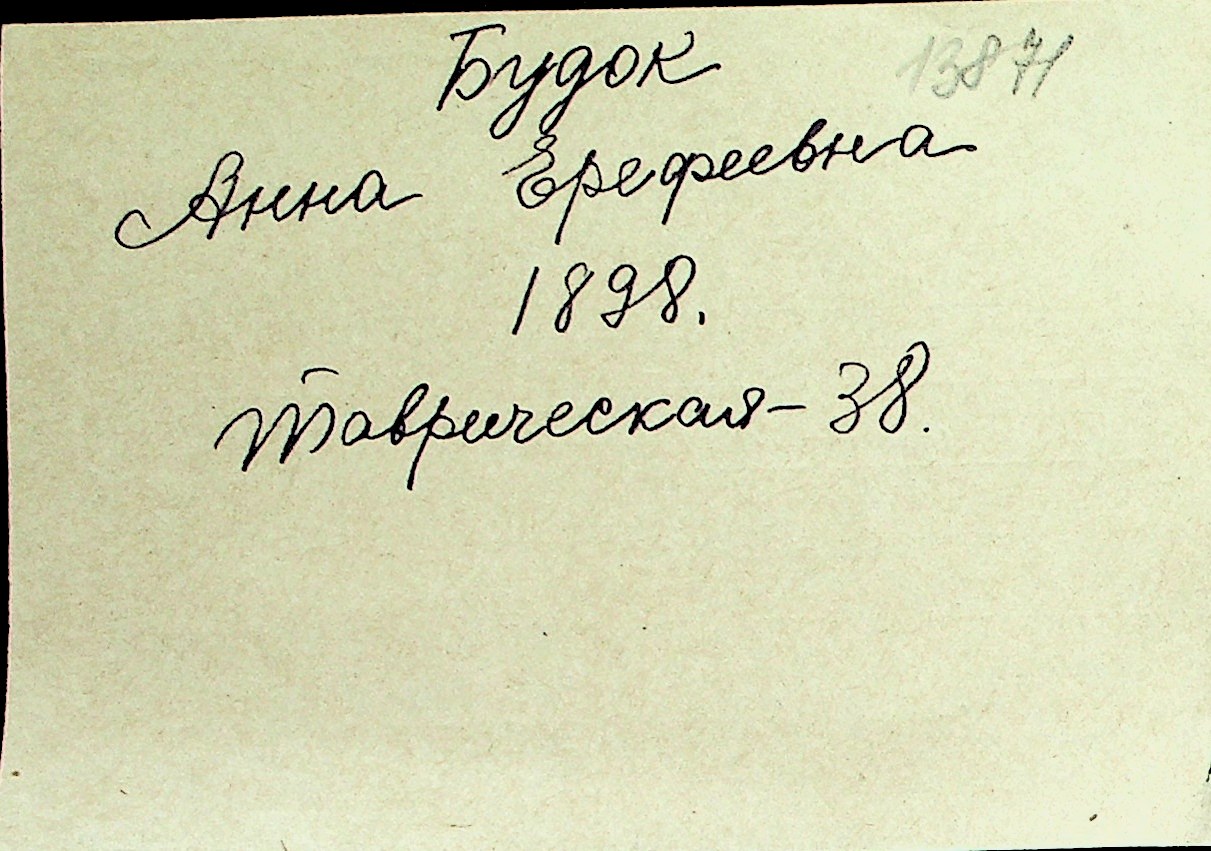 Будок 13871
Анна Ерефеевна
1898.
Таврическая - 38.